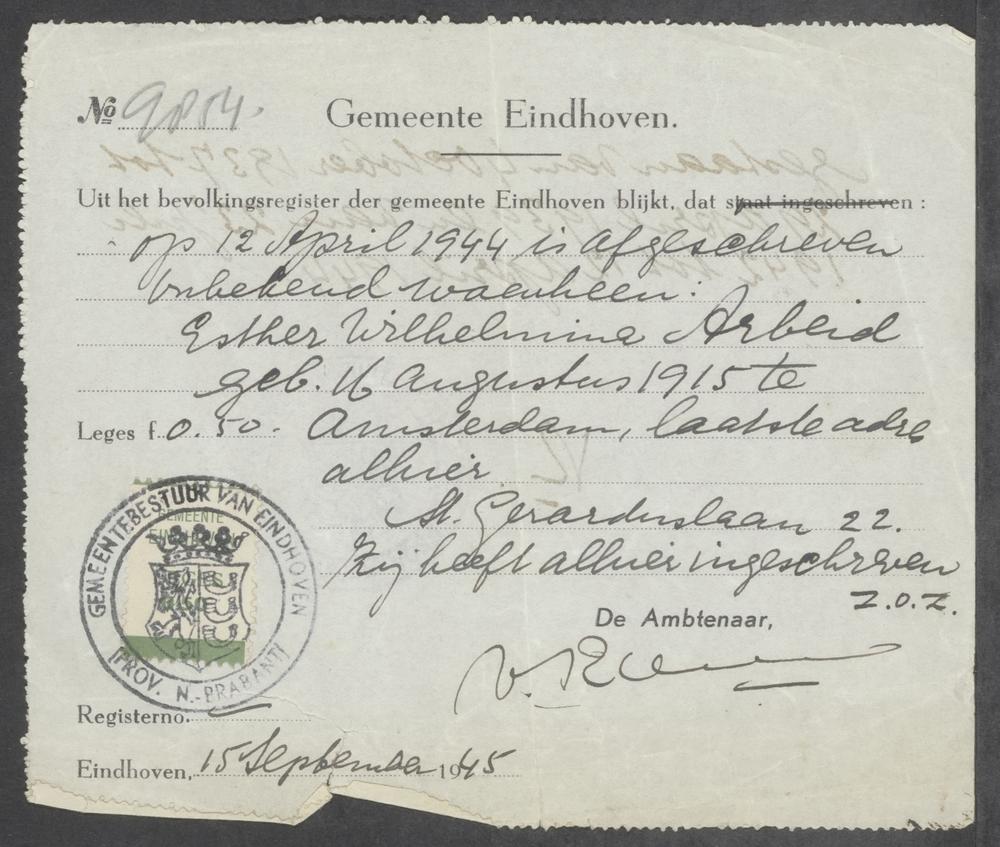 No 9854.
Gemeente Eindhoven.
Uit het bevolkingsregister der gemeente Eindhoven blijkt, dat staat ingeschreven :
op 12 April 1944 is afgeschreven
onbekend waarheen:
Esther Wilhelmina Arbeid
geb. 16 Augustus 1915 te
Leges f. 0.50. Amsterdam, laatste adres
alhier
St. Gerarduslaan 22.
Zij heeft alhier ingeschreven
Z.O.Z.
De Ambtenaar,
GEMEENTEBESTUUR VAN EINDHOVEN
PROV. N.-BRABANT
GEMEENTE
Registerno.
Eindhoven, 15 September 1945